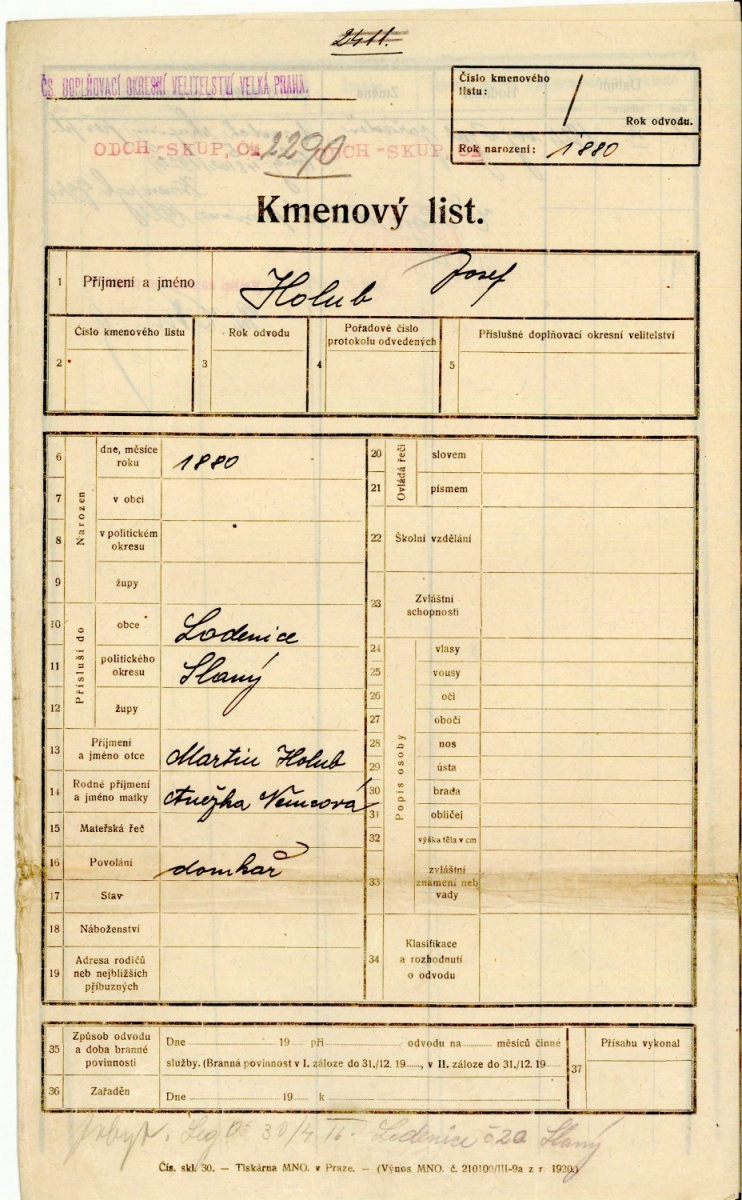 2411.
ČS. DOPLŇOVACÍ OKRESNÍ VELITELSTVÍ VELKÁ PRAHA.
Číslo kmenového
listu: /
Rok odvodu.
Rok narození: 1880
ODCH-SKUP, Čís. 2290 ODCH-SKUP, Čís.
Kmenový list.
1 Příjmení a jméno Holub Josef
2 Číslo kmenového listu
3 Rok odvodu
4 Pořadové číslo
protokolu odvedených
5 Příslušné doplňovací okresní velitelství
Narozen
6 dne, měsíce
roku 1880
7 v obci
8 v politickém
okresu
9 župy
Přísluší do
10 obce Lodenice
11 politického
okresu Slaný
12 župy
13 Příjmení
a jméno otce Martin Holub
14 Rodné příjmení
a jméno matky Anežka Němcová
15 Mateřská řeč
16 Povolání domkař
17 Stav
18 Náboženství
19 Adresa rodičů
neb nejbližších
příbuzných
Ovládá řeči
20 slovem
21 písmem
22 Školní vzdělání
23 Zvláštní
schopnosti
Popis osoby
24 vlasy
25 vousy
26 oči
27 obočí
28 nos
29 ústa
30 brada
31 obličej
32 výška těla v cm
33 zvláštní
znamení neb
vady
34 Klasifikace
a rozhodnutí
o odvodu
35 Způsob odvodu
a doba branné
povinnosti
Dne 19 při odvodu na měsíců činné
služby. (Branná povinnost v I. záloze do 31./12. 19 , v II. záloze do 31./12. 19
36 Zařaděn Dne 19 k
37 Přísahu vykonal
pobyt. Leg. 30/4 II. Lodenice č 20 Slaný
Čís. skl. 30. — Tiskárna MNO. v Praze. — (Výnos MNO. č. 210100/III-9a z r. 1920.)